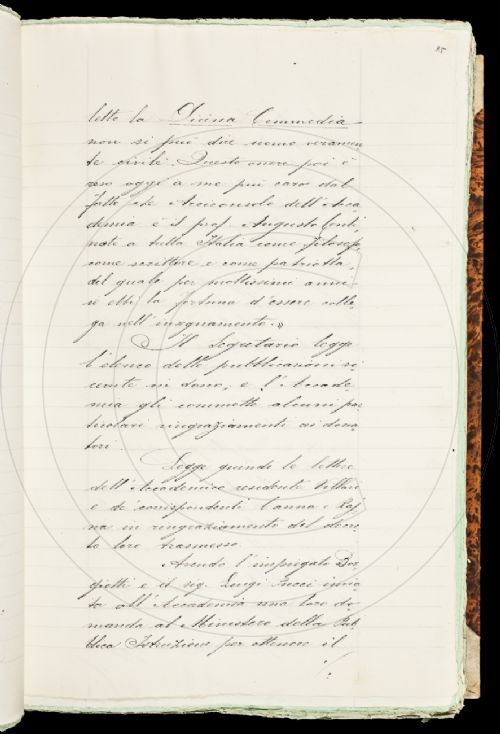 85
letto la Divina Commedia
non si può dire uomo veramen
te civile. Questo onore poi è
reso oggi a me più caro dal
fatto che Arciconsolo dell'Acca
demia è il prof. Augusto Conti,
noto a tutta Italia come filosofo,
come scrittore e come patriotta,
del quale per moltissimi anni
io ebbi la fortuna d'essere colle
ga nell'insegnamento.»
Il Segretario legge
l'elenco delle pubblicazioni ri
cevute in dono, e l'Accade
mia gli commette alcuni par
ticolari ringraziamenti ai dona
tori.
Legge quindi le lettere
dell'Accademico residente Villari
e de' corrispondenti Canna e Raj
na in ringraziamento del
to loro trasmesso.
Avendo l'impiegato
e il sig. Luigi invia
to all'Accademia una loro do
manda al Ministero della Pub
blica Istruzione per ottenere il